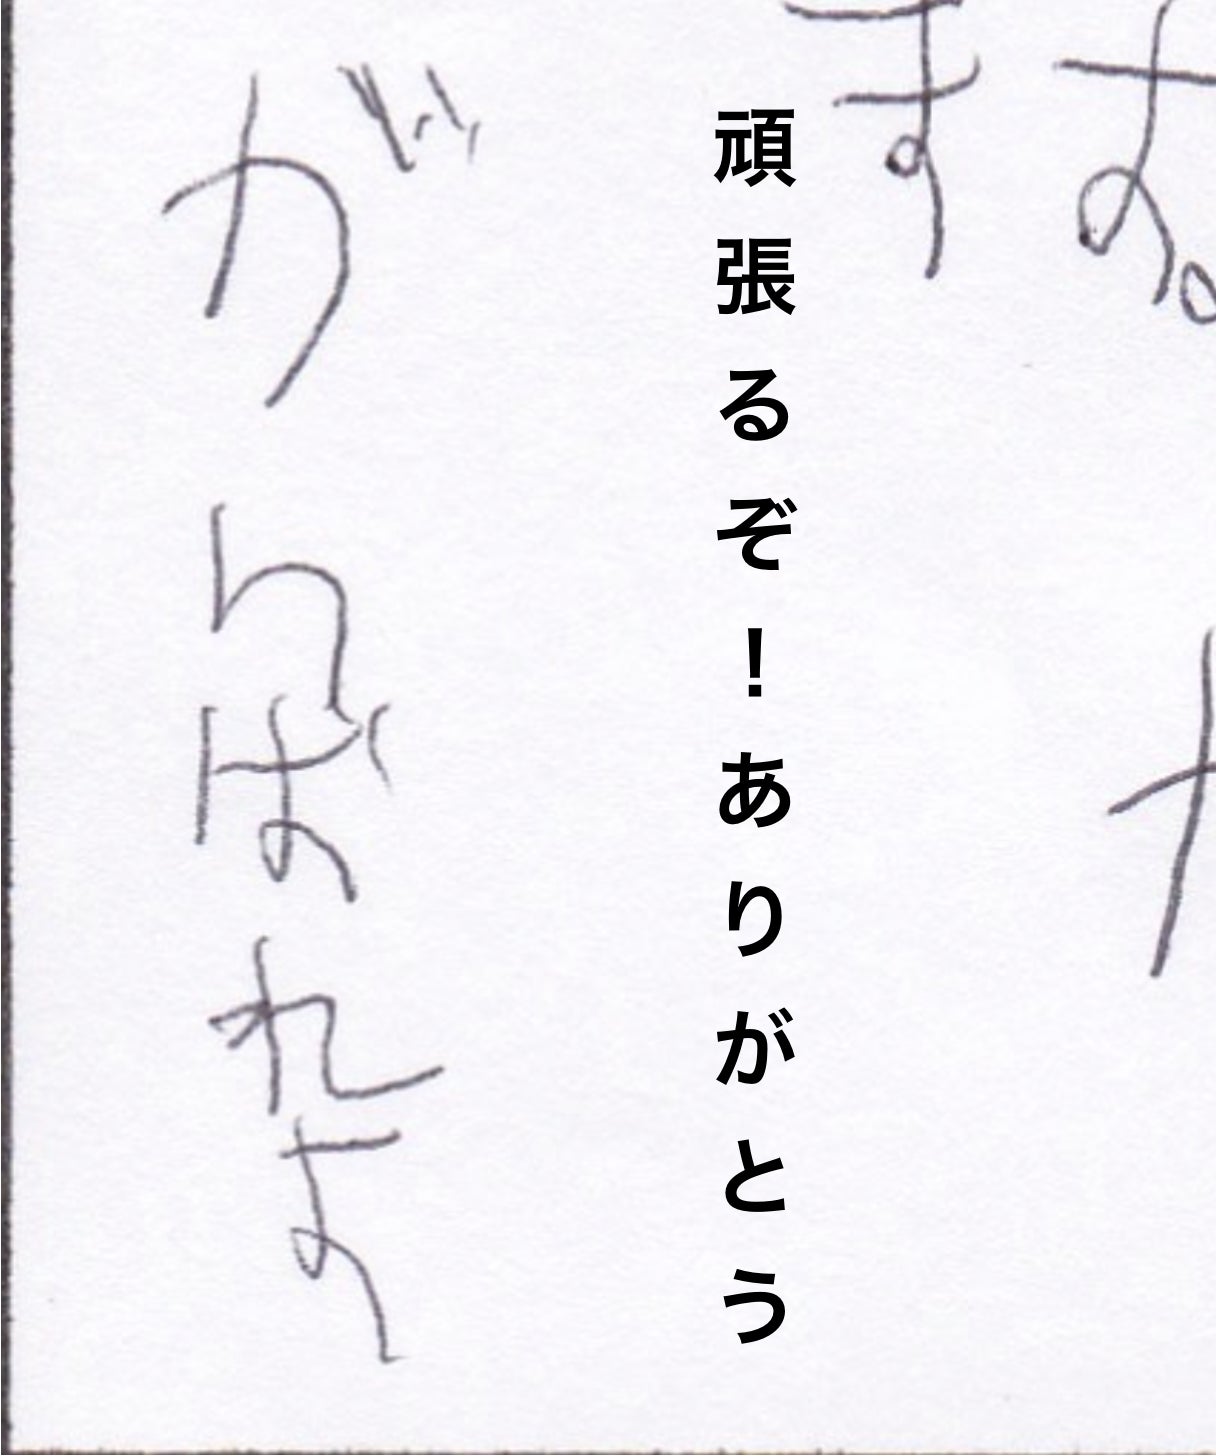 す
頑張るぞ！ありがとう
がんばれよ